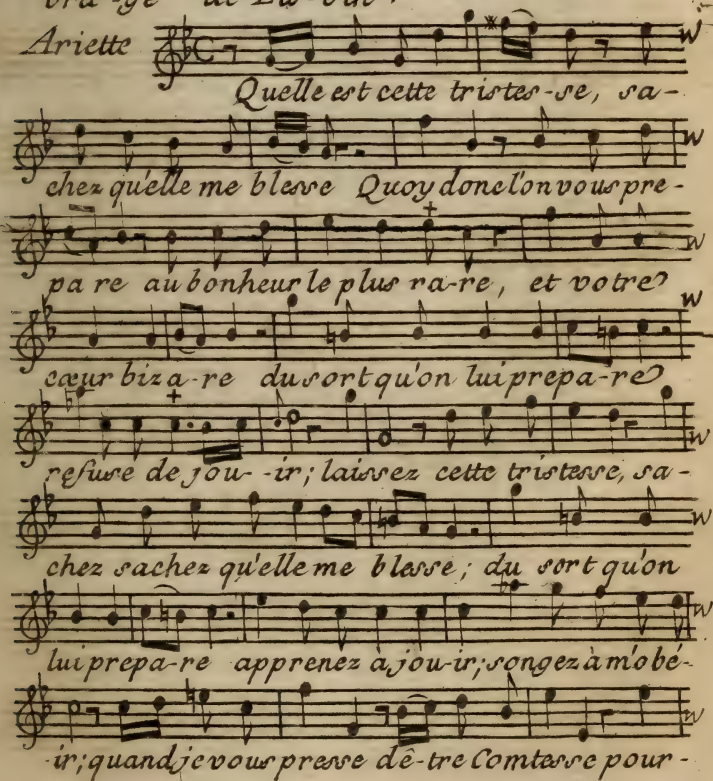 Ariette
Quelle est cette tristes-se, sa-
chez qu'elle me blesse Quoy donc l'on vous pre-
pa re au bonheur le plus ra-re, et votre
cœur biza-re du sort qu'on lui prepa-re
refuse de jou--ir; laissez cette tristesse, sa-
chez sachez qu'elle me blesse; du sort qu'on
lui prepa-re apprenez à jou-ir; songez à m'obé-
-ir; quand je vous presse dê-tre Comtesse pour-